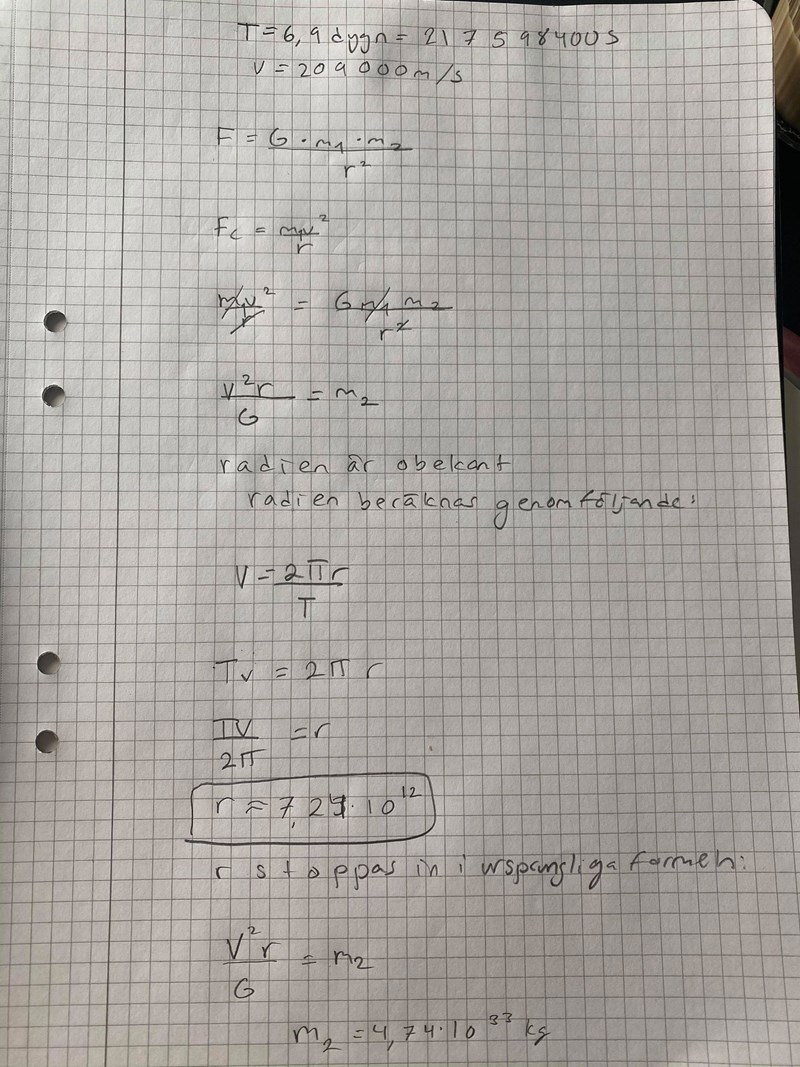 T = 6,9 dygn = 217598400 s
V = 209 000 m/s
F = G · m₁ · m₂ / r²
Fc = m₁v² / r
m₁v² / r = G m₁ m₂ / r²
v²r / G = m₂
radien är obekant
radien beräknas genom följande:
V = 2πr / T
Tv = 2π r
TV / 2π = r
r ≈ 7,24 · 10¹²
r stoppas in i urspangliga formeh:
V²r / G = m₂
m₂ = 4,74 · 10³³ kg